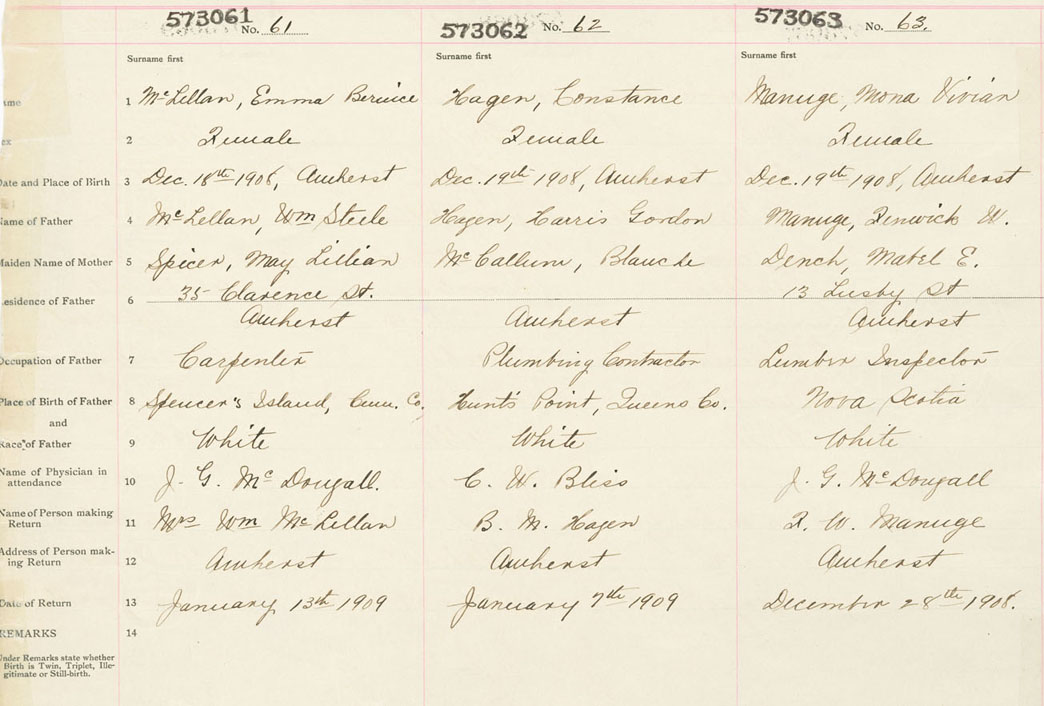 573061 No. 61 573062 No. 62 573063 No. 63.
Surname first Surname first Surname first
ame 1 McLellan, Emma Bernice Hagen, Constance Manuge, Mona Vivian
ex 2 Female Female Female
Date and Place of Birth 3 Dec. 18th 1908, Amherst Dec. 19th 1908, Amherst Dec. 19th 1908, Amherst
Name of Father 4 McLellan, Wm Steele Hagen, Harris Gordon Manuge, Fenwick W.
Maiden Name of Mother 5 Spicer, May Lillian McCallum, Blanche Dench, Mabel E.
Residence of Father 6 35 Clarence St. 13 Lusby St
Amherst Amherst Amherst
Occupation of Father 7 Carpenter Plumbing Contractor Lumber Inspector
Place of Birth of Father 8 Spencer's Island, Cum. Co. Hunt's Point, Queens Co. Nova Scotia
and
Race of Father 9 White White White
Name of Physician in
attendance 10 J. G. McDougall. C. W. Bliss J. G. McDougall
Name of Person making
Return 11 Mrs Wm McLellan B. M. Hagen F. W. Manuge
Address of Person mak-
ing Return 12 Amherst Amherst Amherst
Date of Return 13 January 13th 1909 January 7th 1909 December 28th 1908.
REMARKS 14
Under Remarks state whether
Birth is Twin, Triplet, Ille-
gitimate or Still-birth.